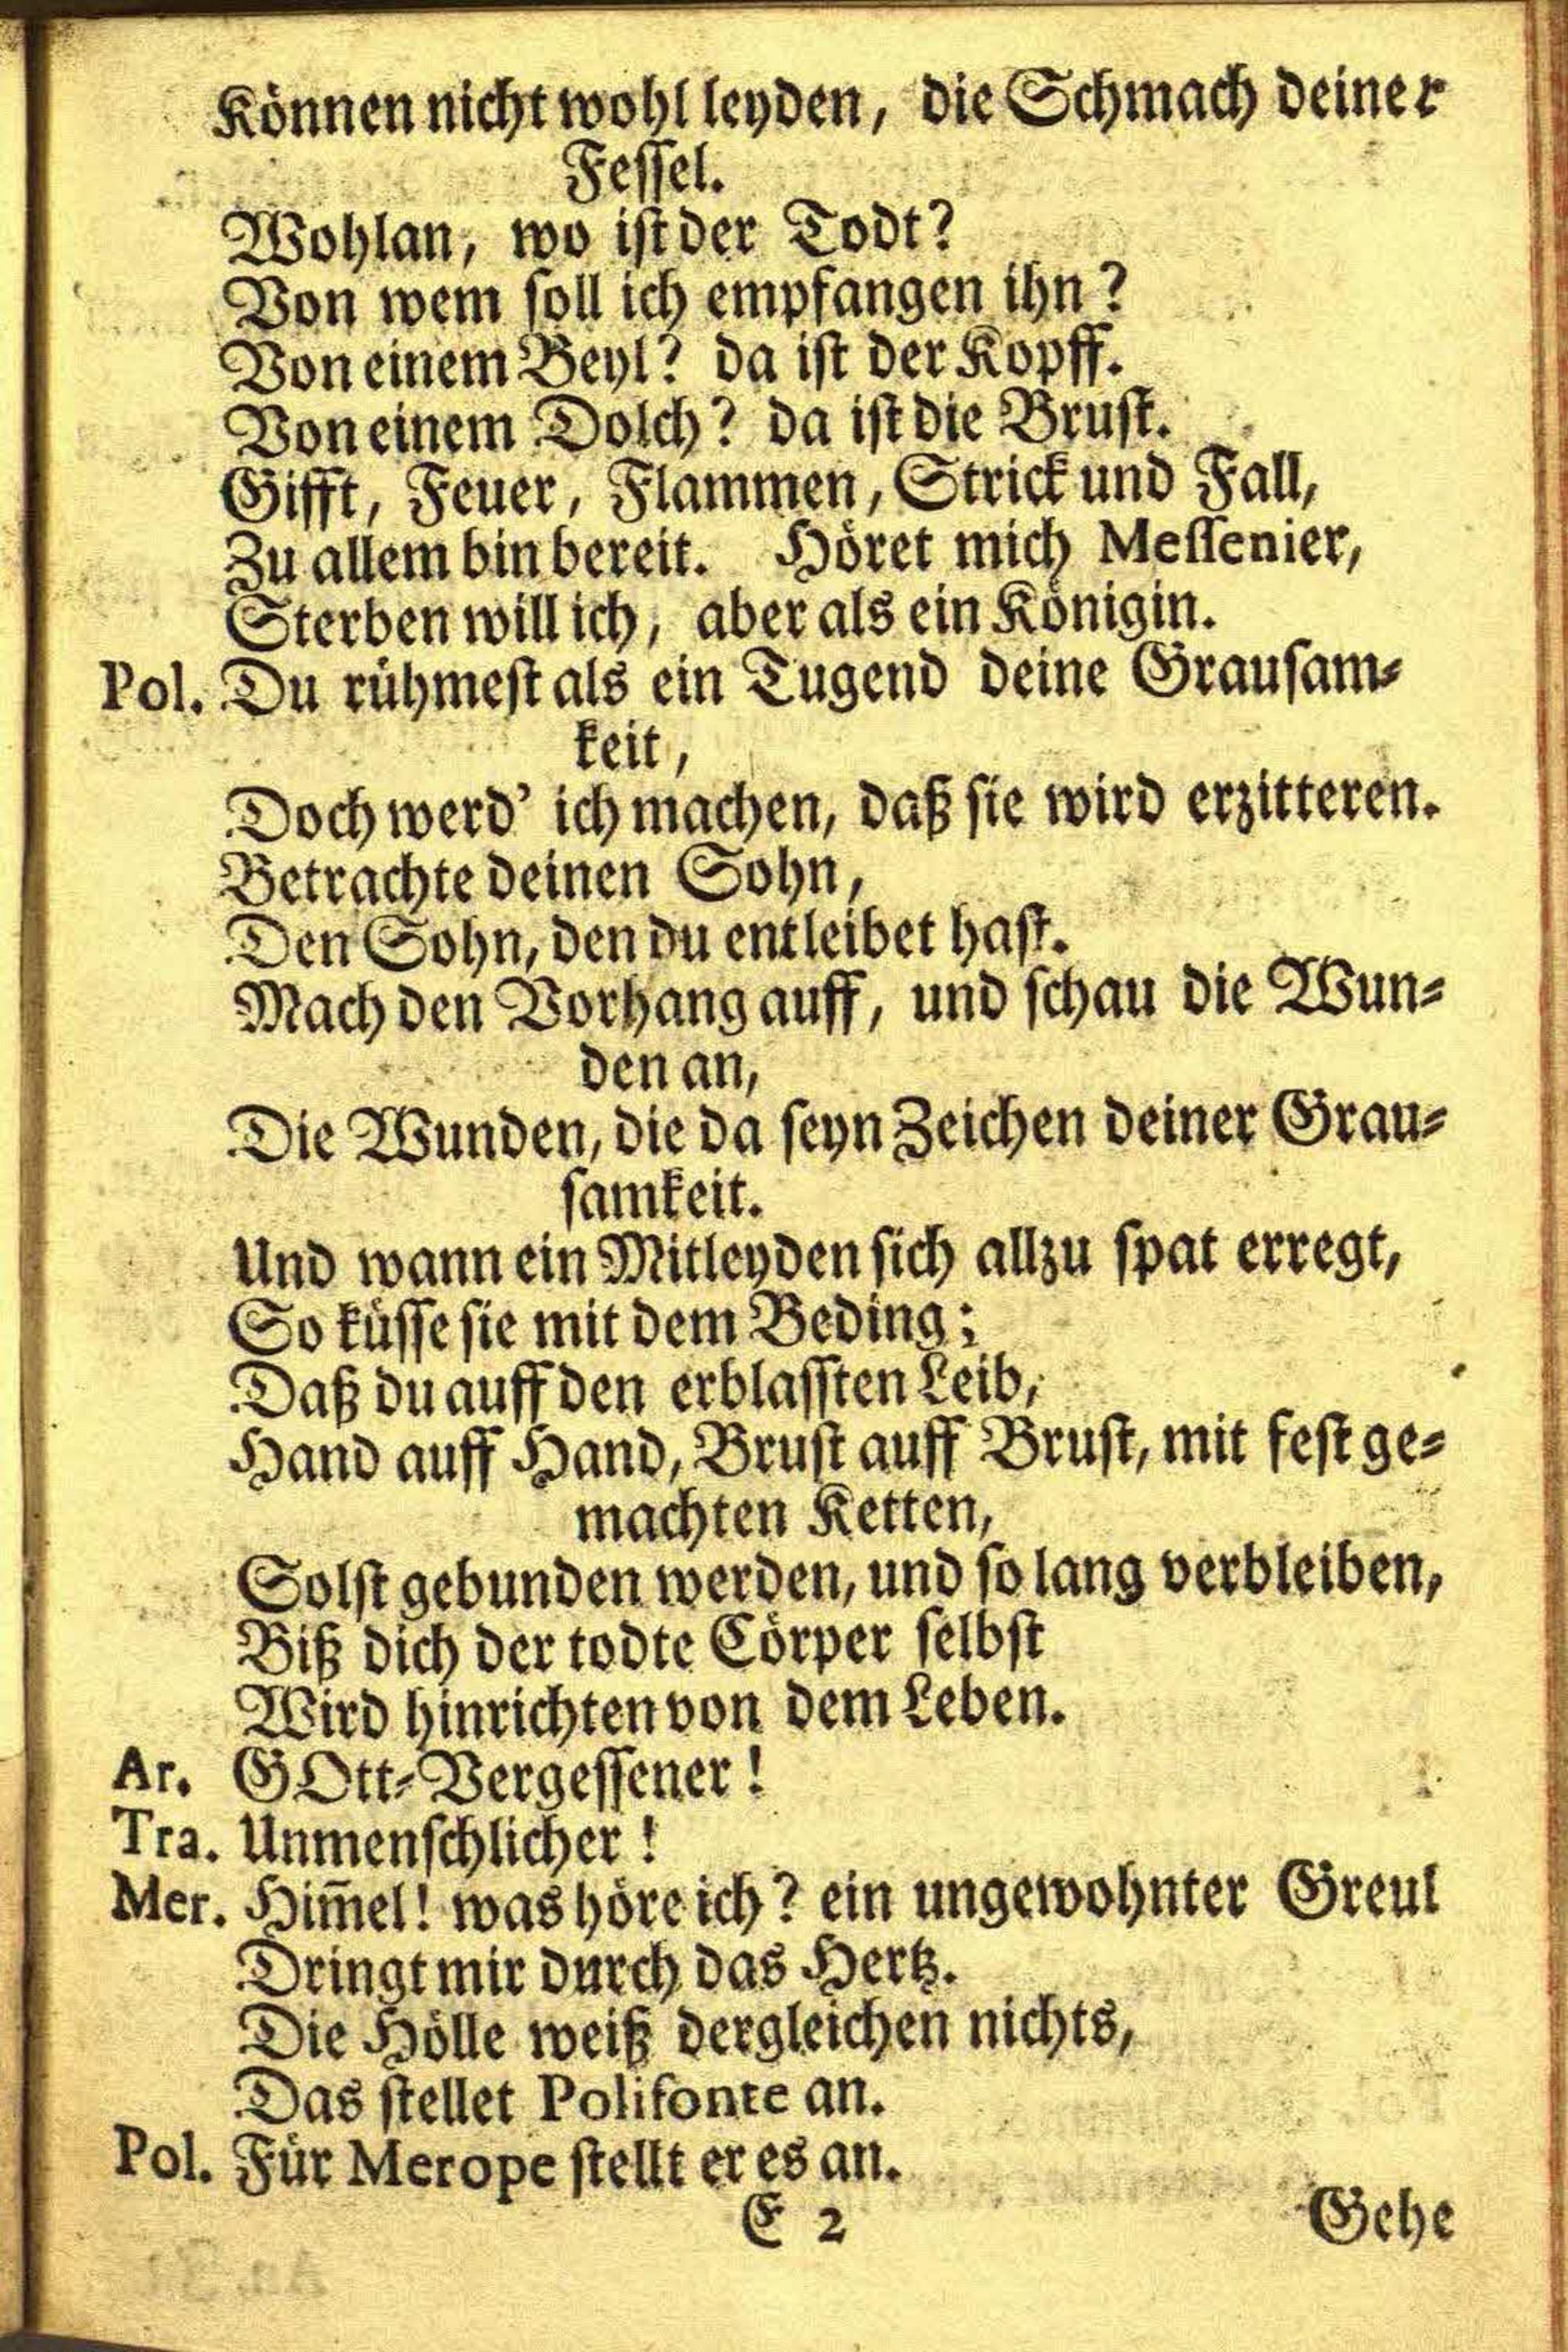 Können nicht wohl leyden, die Schmach deiner
Fessel.
Wohlan, wo ist der Todt?
Von wem soll ich empfangen ihn?
Von einem Beyl? da ist der Kopff.
Von einem Dolch? da ist die Brust.
Gifft, Feuer, Flammen, Strick und Fall,
Zu allem bin bereit. Höret mich Messenier,
Sterben will ich, aber als ein Königin.
Pol. Du rühmest als ein Tugend deine Grausam-
keit,
Doch werd' ich machen, daß sie wird erzitteren.
Betrachte deinen Sohn,
Den Sohn, den du entleibet hast.
Mach den Vorhang auff, und schau die Wun-
den an,
Die Wunden, die da seyn Zeichen deiner Grau-
samkeit.
Und wann ein Mitleyden sich allzu spat erregt,
So küsse sie mit dem Beding;
Daß du auff den erblassten Leib,
Hand auff Hand, Brust auff Brust, mit fest ge-
machten Ketten,
Solst gebunden werden, und so lang verbleiben,
Biß dich der todte Cörper selbst
Wird hinrichten von dem Leben.
Ar. GOtt-Vergessener!
Tra. Unmenschlicher!
Mer. Him̄el! was höre ich? ein ungewohnter Greul
Dringt mir durch das Hertz.
Die Hölle weiß dergleichen nichts,
Das stellet Polifonte an.
Pol. Für Merope stellt er es an.
E 2
Gehe